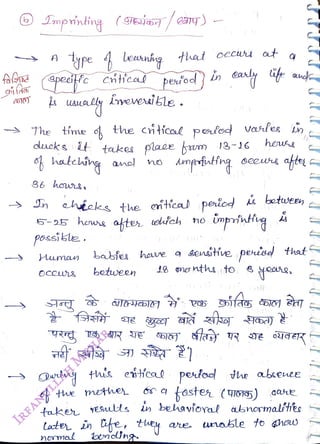 ⑥ Imprinting (अध्यंकन / छाप) -
→ A type of learning that occurs at a
विशिष्ट क्रांतिक काल
specific critical period in early life and
is usually irreversible.
→ The time of the critical period varies in
ducks it takes place from 13-16 hours
of hatching and no imprinting occurs after
36 hours.
→ In chicks the critical period is between
5-25 hours after which no imprinting is
possible.
→ Human babies have a sensitive period that
occurs between 18 months to 6 years.
→ जन्तु के बाल्यकाल में एक क्रांतिक काल होता
है जिसमें यह कुछ बातें सीख सकता है
परन्तु एक बार यह काल बीतने पर यह व्यवहार
नहीं सीखे जा सकते हैं।
→ During this critical period the absence
of the mother or a foster (पालक) care
taker results in behavioral abnormalities
later in life, they are unable to show
normal bonding.
IRFANULLAH SCHOLAR